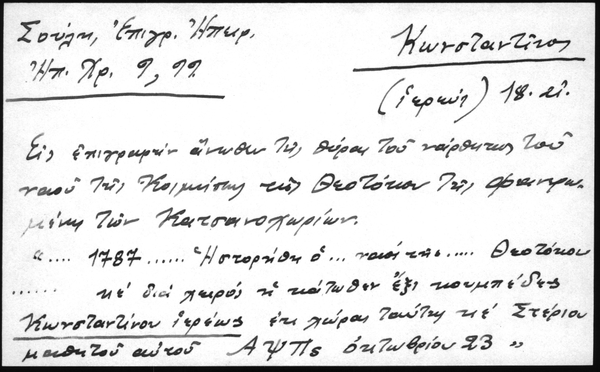 Σούλη, Ἐπιγρ. Ἠπειρ.
Ἠπ. Χρ. 9, 99.
Κωνσταντῖνος
(ἱερεύς) 18. αἰ.
Εἰς ἐπιγραφὴν ἄνωθεν τῆς θύρας τοῦ νάρθηκος τοῦ
ναοῦ τῆς Κοιμήσεως τῆς Θεοτόκου τῆς Φανερω-
μένης τῶν Κατσανοχωρίων.
".... 1787 ...... Ἠστορήθη ὁ ... ναὸς τῆς ..... Θεοτόκου
...... κὲ διὰ χειρός κάτωθεν ἕξι κουμπέδες
Κωνσταντίνου ἱερέως ἐκ χώρας ταύτης κὲ Στέριου
μαθητοῦ αὐτοῦ ΑΨΠς ὀκτωβρίου 23 "